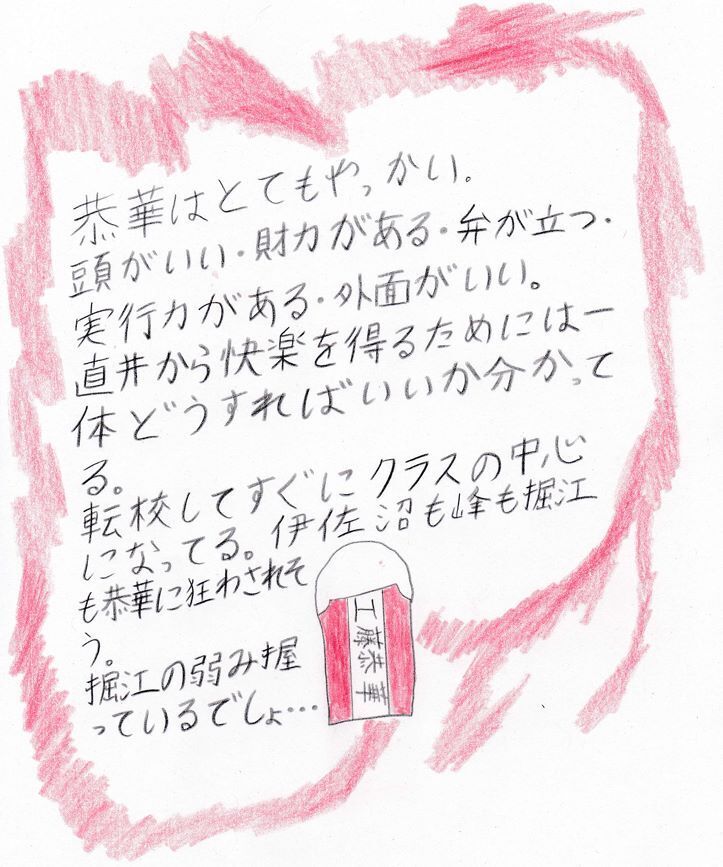 恭華はとてもやっかい。
頭がいい・財力がある・弁が立つ・
実行力がある・外面がいい。
直井から快楽を得るためには一
体どうすればいいか分かって
る。
転校してすぐにクラスの中心
になってる。伊佐沼も峰も掘江
も恭華に狂わされそ
う。
掘江の弱み握
っているでしょ…
工藤恭華